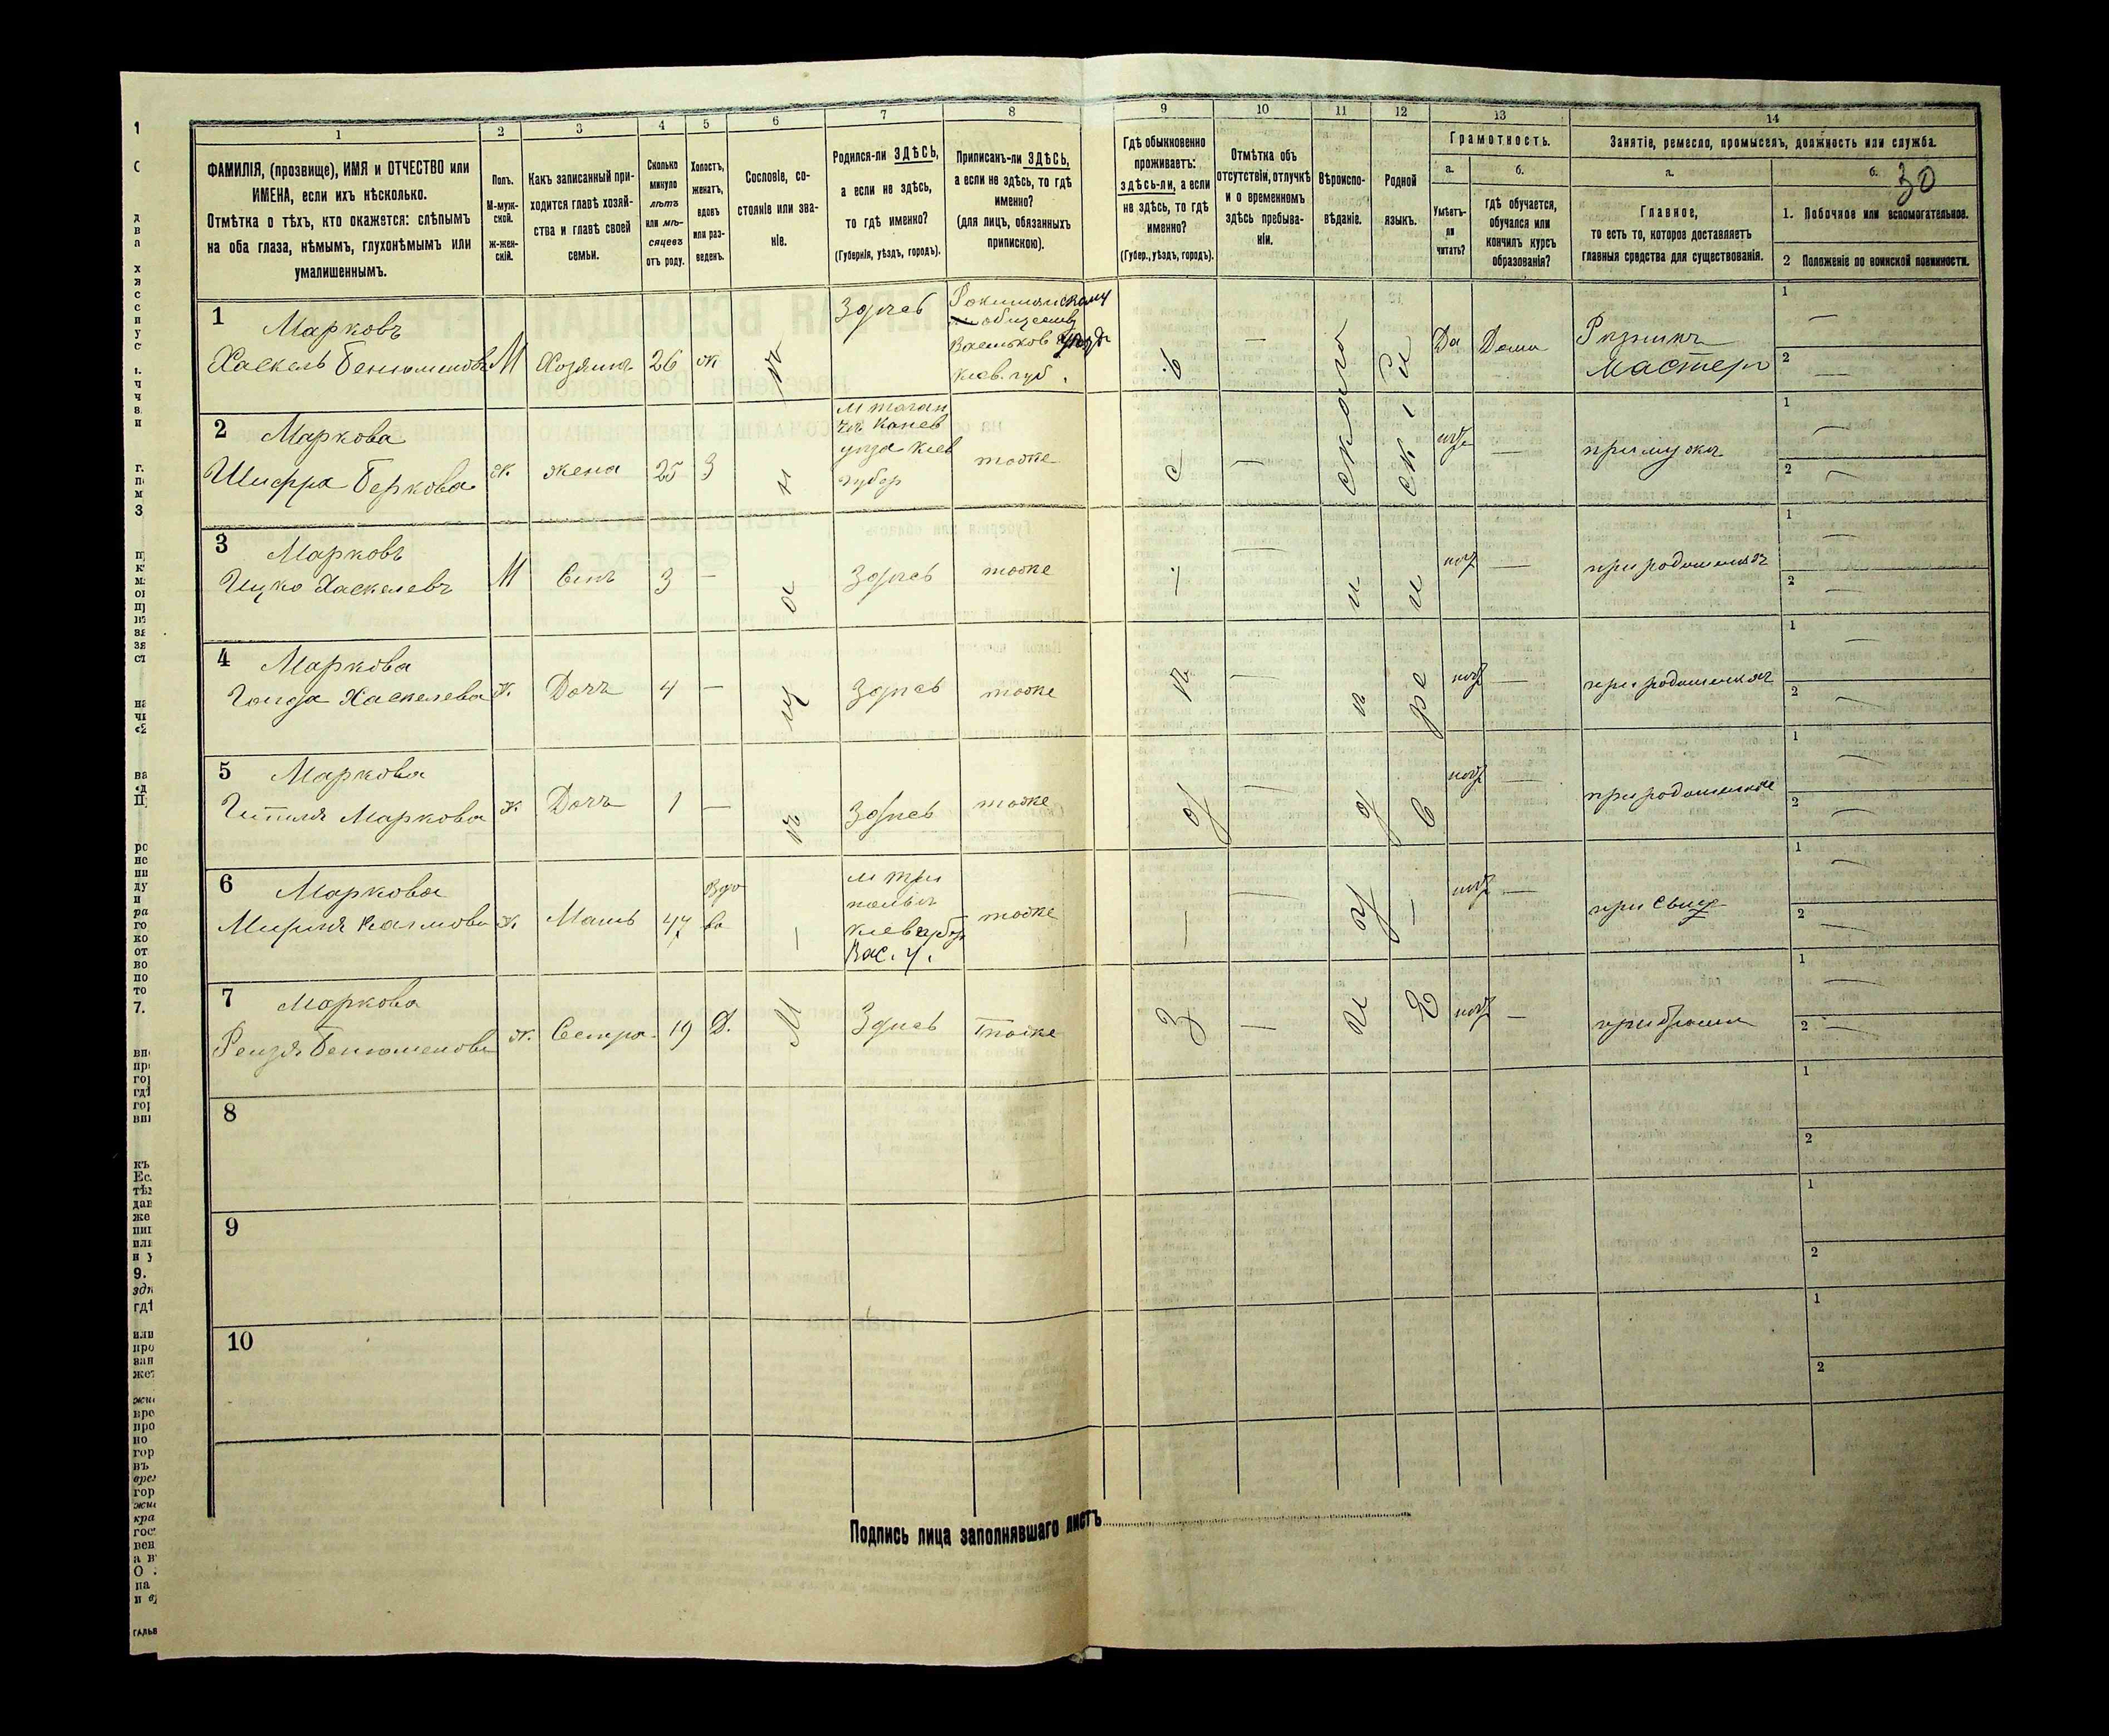 30
1 2 3 4 5 6 7 8 9 10 11 12 13 14
ФАМИЛІЯ, (прозвище), ИМЯ и ОТЧЕСТВО или
ИМЕНА, если ихъ нѣсколько.
Отмѣтка о тѣхъ, кто окажется: слѣпымъ
на оба глаза, нѣмымъ, глухонѣмымъ или
умалишеннымъ.
Полъ.
М-муж-
ской.
ж-жен-
скій.
Какъ записанный при-
ходится главѣ хозяй-
ства и главѣ своей
семьи.
Сколько
минуло
лѣтъ
или мѣ-
сяцевъ
отъ роду.
Холостъ,
женатъ,
вдовъ
или раз-
веденъ.
Сословіе, со-
стояніе или зва-
ніе.
Родился-ли ЗДѢСЬ,
а если не здѣсь,
то гдѣ именно?
(Губернія, уѣздъ, городъ).
Приписанъ-ли ЗДѢСЬ,
а если не здѣсь, то гдѣ
именно?
(для лицъ, обязанныхъ
припискою).
Гдѣ обыкновенно
проживаетъ:
здѣсь-ли, а если
не здѣсь, то гдѣ
именно?
(Губер., уѣздъ, городъ).
Отмѣтка объ
отсутствіи, отлучкѣ
и о временномъ
здѣсь пребыва-
ніи.
Вѣроиспо-
вѣданіе.
Родной
языкъ.
Грамотность.
а.
Умѣетъ-
ли
читать?
б.
гдѣ обучается,
обучался или
кончилъ курсъ
образованія?
Занятіе, ремесло, промыселъ, должность или служба.
а.
Главное,
то есть то, которое доставляетъ
главныя средства для существованія.
б.
1. Побочное или вспомогательное.
2 Положеніе по воинской повинности.
1 Марковъ
Хаскель Бенюменовъ М Хозяинъ 26 ж Здѣсь
обществу
Васильков уѣзд
Кіев. губ. — Да Дома
мастеръ 1 — 2 —
2 Маркова
Шифра Беркова ж жена 25 З
Канев
уѣзда Кіев
губер тоже — нѣт — при мужѣ 1 — 2 —
3 Марковъ
Ицко Хаскелевъ М Сынъ 3 — Здѣсь тоже — нѣт — при родителяхъ 1 — 2 —
4 Маркова
Хаскелева ж. Дочь 4 — Здѣсь тоже — нѣт — при родителяхъ 1 — 2 —
5 Маркова
Маркова ж Дочь 1 — Здѣсь тоже — нѣт — при родителяхъ 1 — 2 —
6 Маркова
ж. Мать 47 Вдова
м Три
полья
Кіев губер
Вас. у. тоже — нѣт — при сыну 1 — 2 —
7 Маркова
Бенюменова ж. Сестра 19 Д. Здѣсь тоже — нѣт — при братѣ 1 — 2 —
Мѣщанинъ
Здѣсь
Іудейскаго
Еврейскій
8 1 2
9 1 2
10 1 2
Подпись лица заполнявшаго листъ